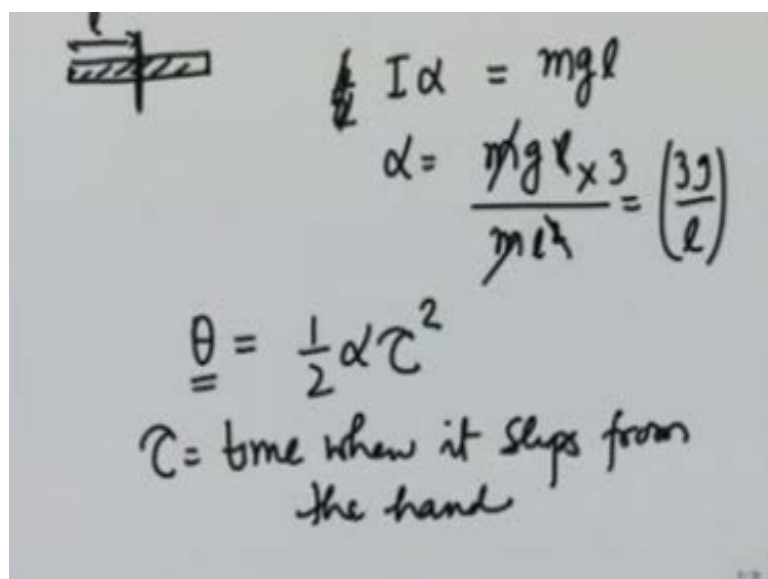 l
Iα = mgl
α = mgl × 3 / ml² = (3g/l)
θ = 1/2 ατ²
τ = time when it slips from
the hand